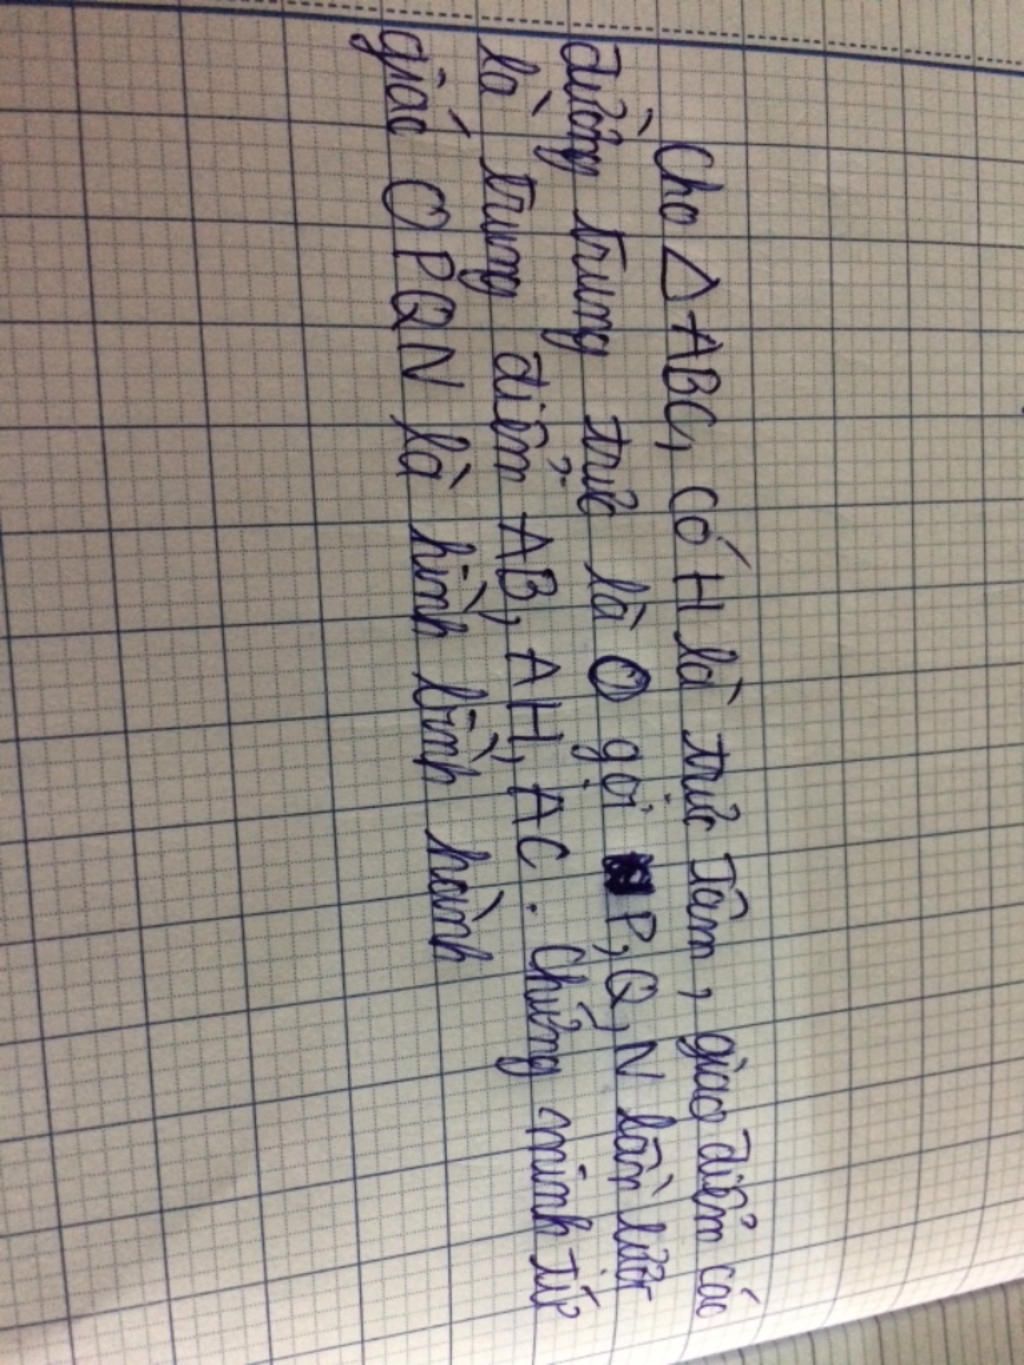 Cho △ABC, có H là trực tâm, giao điểm các
đường trung trực là O gọi P, Q, N lần lượt
là trung điểm AB, AH, AC. Chứng minh tứ
giác OPQN là hình bình hành